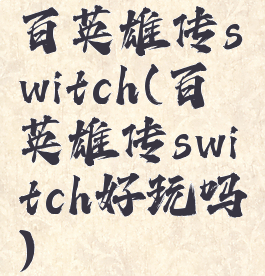 百英雄传s
witch(百
英雄传swi
tch好玩吗
)